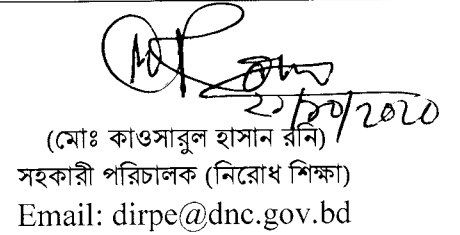 ২১/১০/২০২০
(মোঃ কাওসারুল হাসান রনি)
সহকারী পরিচালক (নিরোধ শিক্ষা)
Email: dirpe@dnc.gov.bd